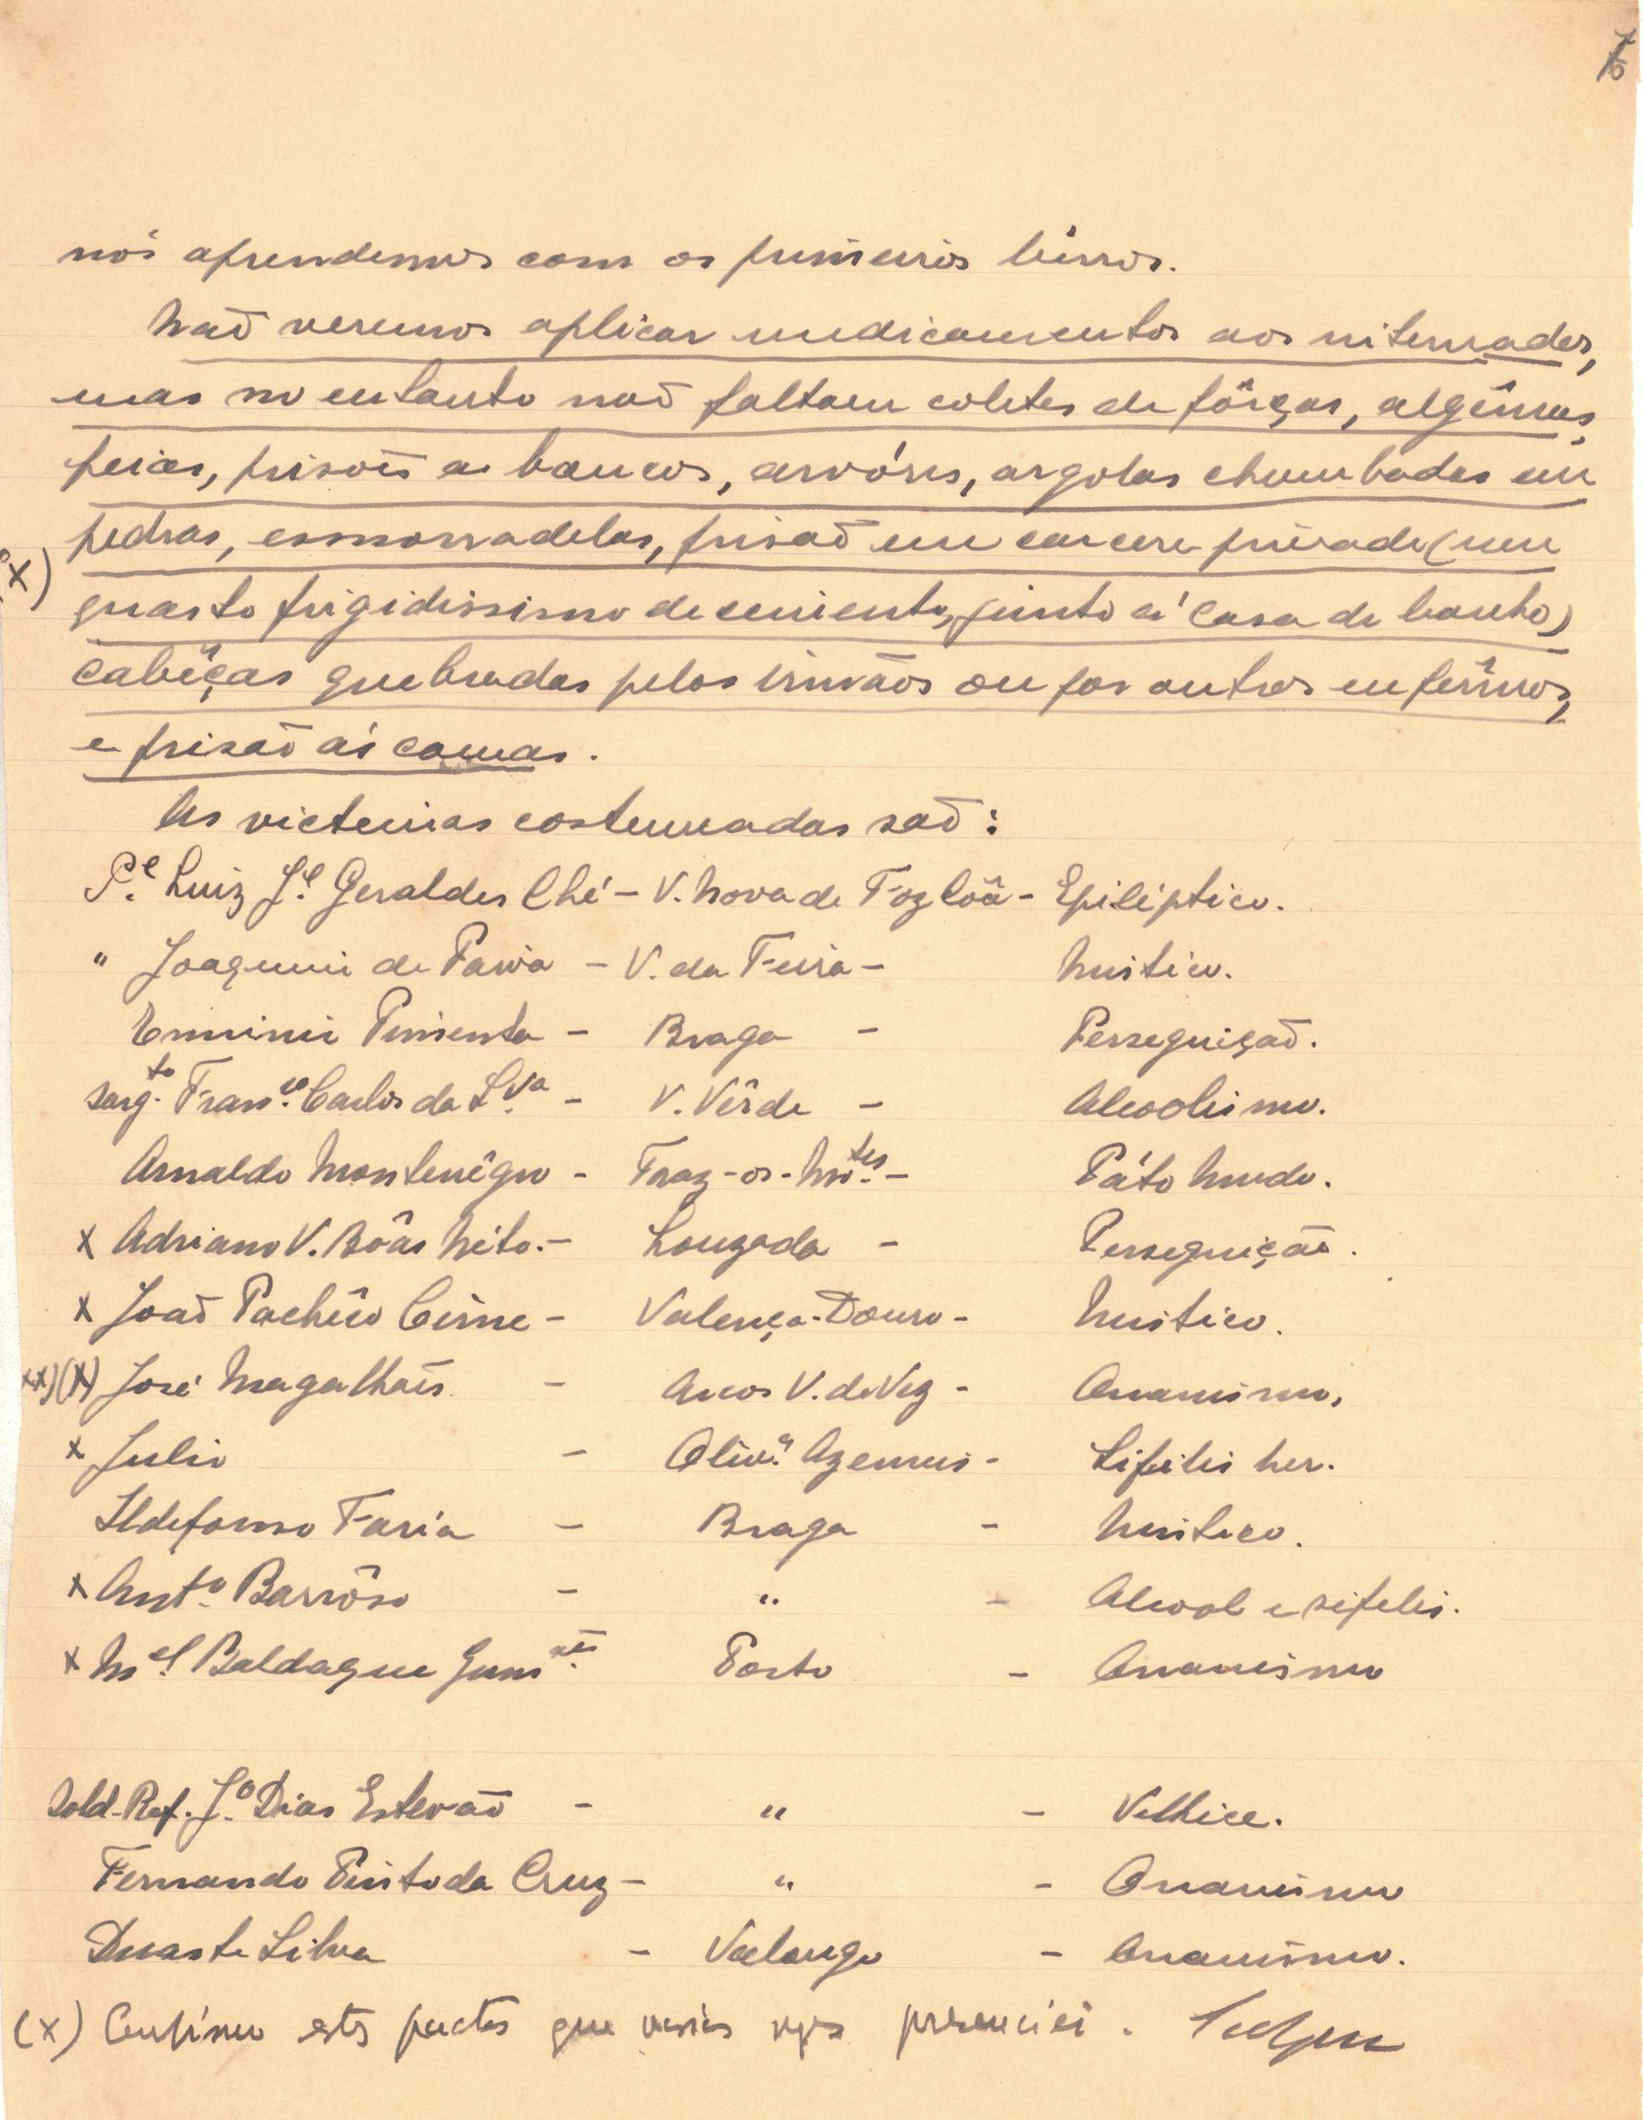 nós aprendemos com os primeiros bêrros.
Naõ veremos aplicar medicamentos aos internados,
mas no entanto naõ faltam coletes de fôrças, algêmas,
peias, prisoẽs a bancos, arvóres, argolas chumbadas em
pedras, esmorradelas, prisaõ em carcere privado (num
(x)
quarto frigidissimo de cimento, junto á casa de banho)
cabêças quebradas pelos irmãos ou por outros enfêrmos,
e prisaõ ás camas.
As victimas costumadas saõ:
P.e Luiz J.e Geraldes Ché - V. Nova de Foz Côa - Epiléptico.
" Joaquim de Paiva - V. da Feira - Mistico.
Erminio Pimenta - Braga - Perseguiçaõ.
Sarg.to Fran.co Carlos da S.va - V. Vêrde - Alcoolismo.
Arnaldo Montenêgro - Traz-os-Mo.tes - Páto Mudo.
x Adriano V. Bôas Néto. - Louzada - Perseguição.
x Joaõ Pachêco Cirne - Valença-Douro - Mistico.
xx) (x) José Magalhaẽs - Arcos V. de Vez - Onanismo.
x Julio - Oliv.a Azemeis - Sifilis her.
Ildefonso Faria - Braga - Mistico.
x Ant.o Barrôso - " - Alcool e sifilis.
x M.el Baldaque Guim.aẽs Porto - Onanismo
Sold. Ref. J.o Dias Estevaõ - " - Velhice.
Fernando Pinto da Cruz - " - Onanismo
Duarte Silva - Valongo - Onanismo.
(x) Confirmo estes factos que varias vezes presenciei.